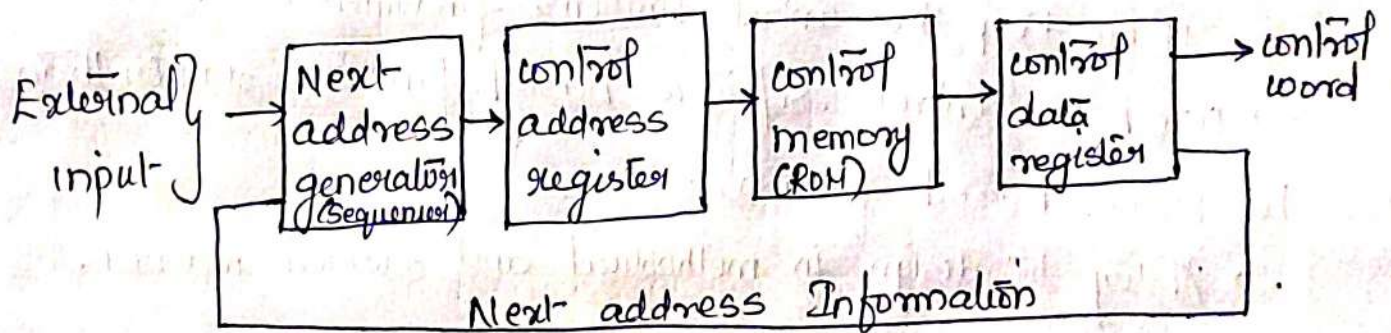 External
input
Next
address
generator
(Sequencer)
control
address
register
control
memory
(ROM)
control
data
register
control
word
Next address Information